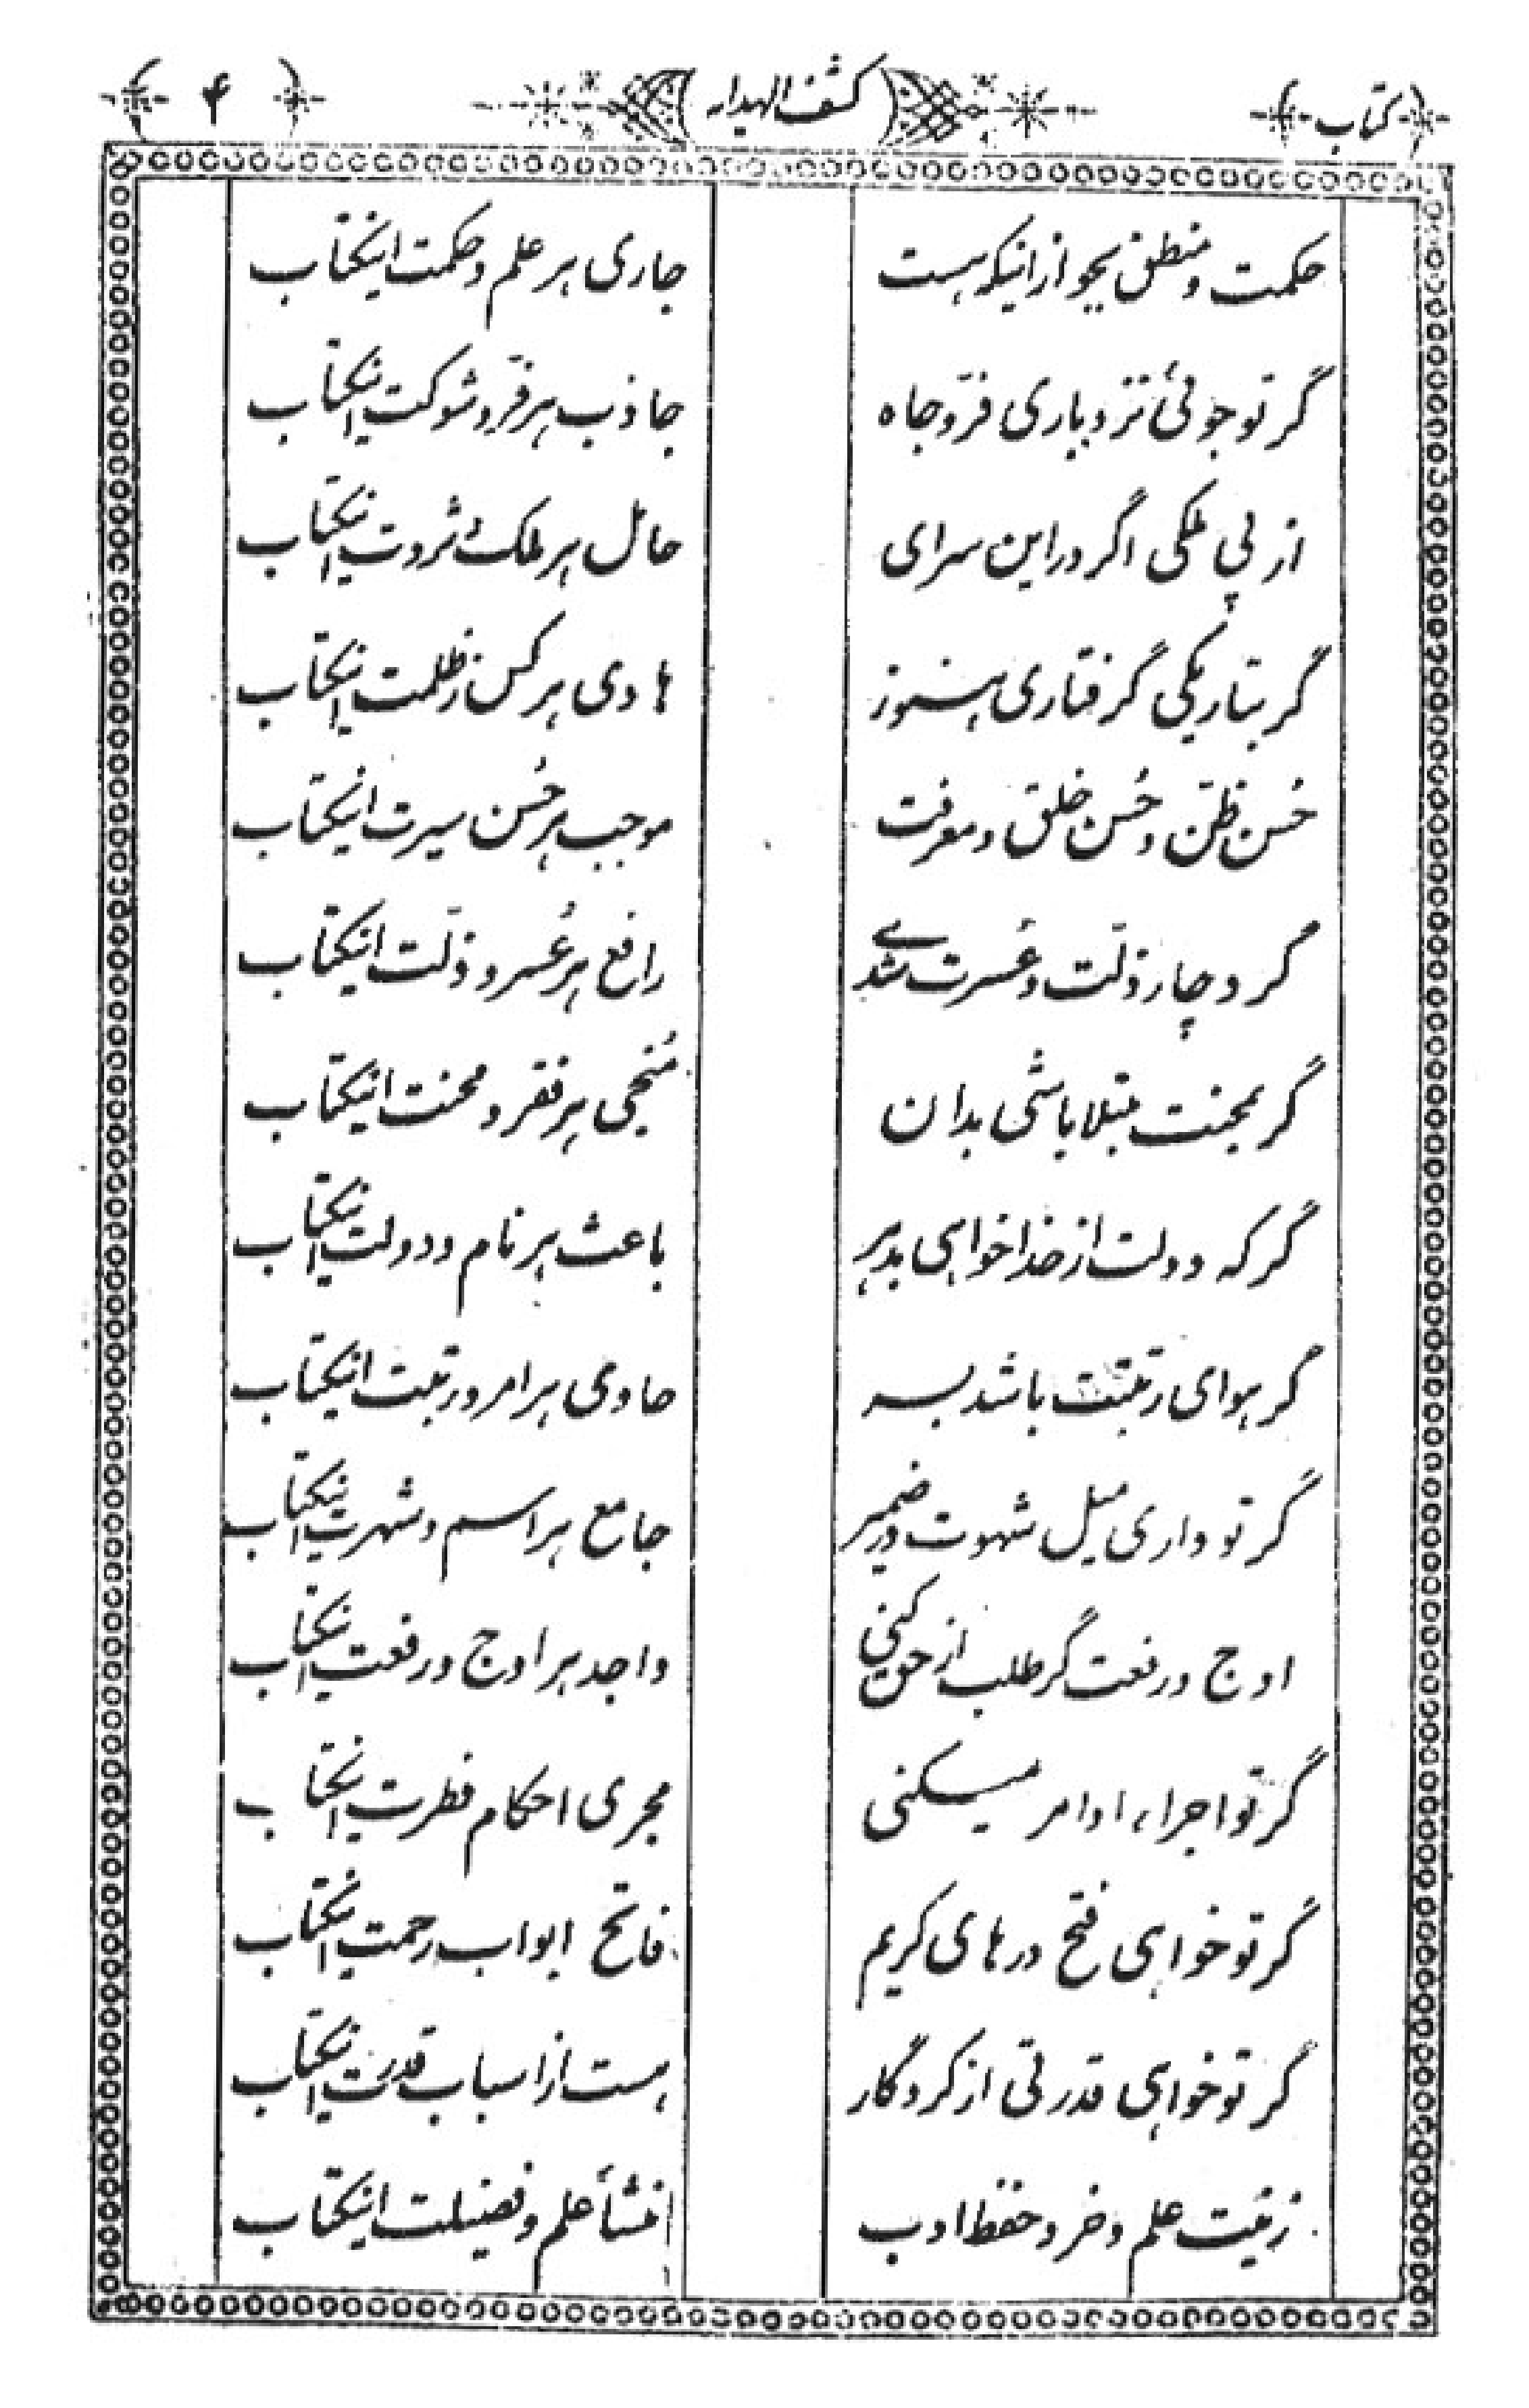 کتاب کشف الهیدار ۴
حکمت و منطق بجو از اینکه هست جاری هر علم و حکمت اینکتاب
گر تو جوئی نزد باری فرّ و جاه جاذب هر فرّ و شوکت اینکتاب
از پی ملکی اگر در این سرای حامل هر ملک و ثروت اینکتاب
گر بتاریکی گرفتاری هنوز هادی هر کس ز ظلمت اینکتاب
حُسن ظنّ و حُسن خلق و معرفت موجب هر حُسن سیرت اینکتاب
گر دچار ذلّت و عُسرت شدی رافع هر عُسر و ذلّت اینکتاب
گر بمحنت مبتلا باشی بدان مُنجی هر فقر و محنت اینکتاب
گر که دولت از خدا خواهی بدهر باعث هر نام و دولت اینکتاب
گر هوای رتبتت باشد بسر حاوی هر امر و رتبت اینکتاب
گر تو داری میل شهوت در ضمیر جامع هر اسم و شهرت اینکتاب
اوج و رفعت گر طلب از حق کنی واجد هر اوج و رفعت اینکتاب
گر تو اجراء اوامر میکنی مجری احکام فطرت اینکتاب
گر تو خواهی فتح درهای کریم فاتح ابواب رحمت اینکتاب
گر تو خواهی قدرتی از کردگار هست از اسباب قدرت اینکتاب
زینت علم و خرد حفظ ادب منشأ علم و فضیلت اینکتاب